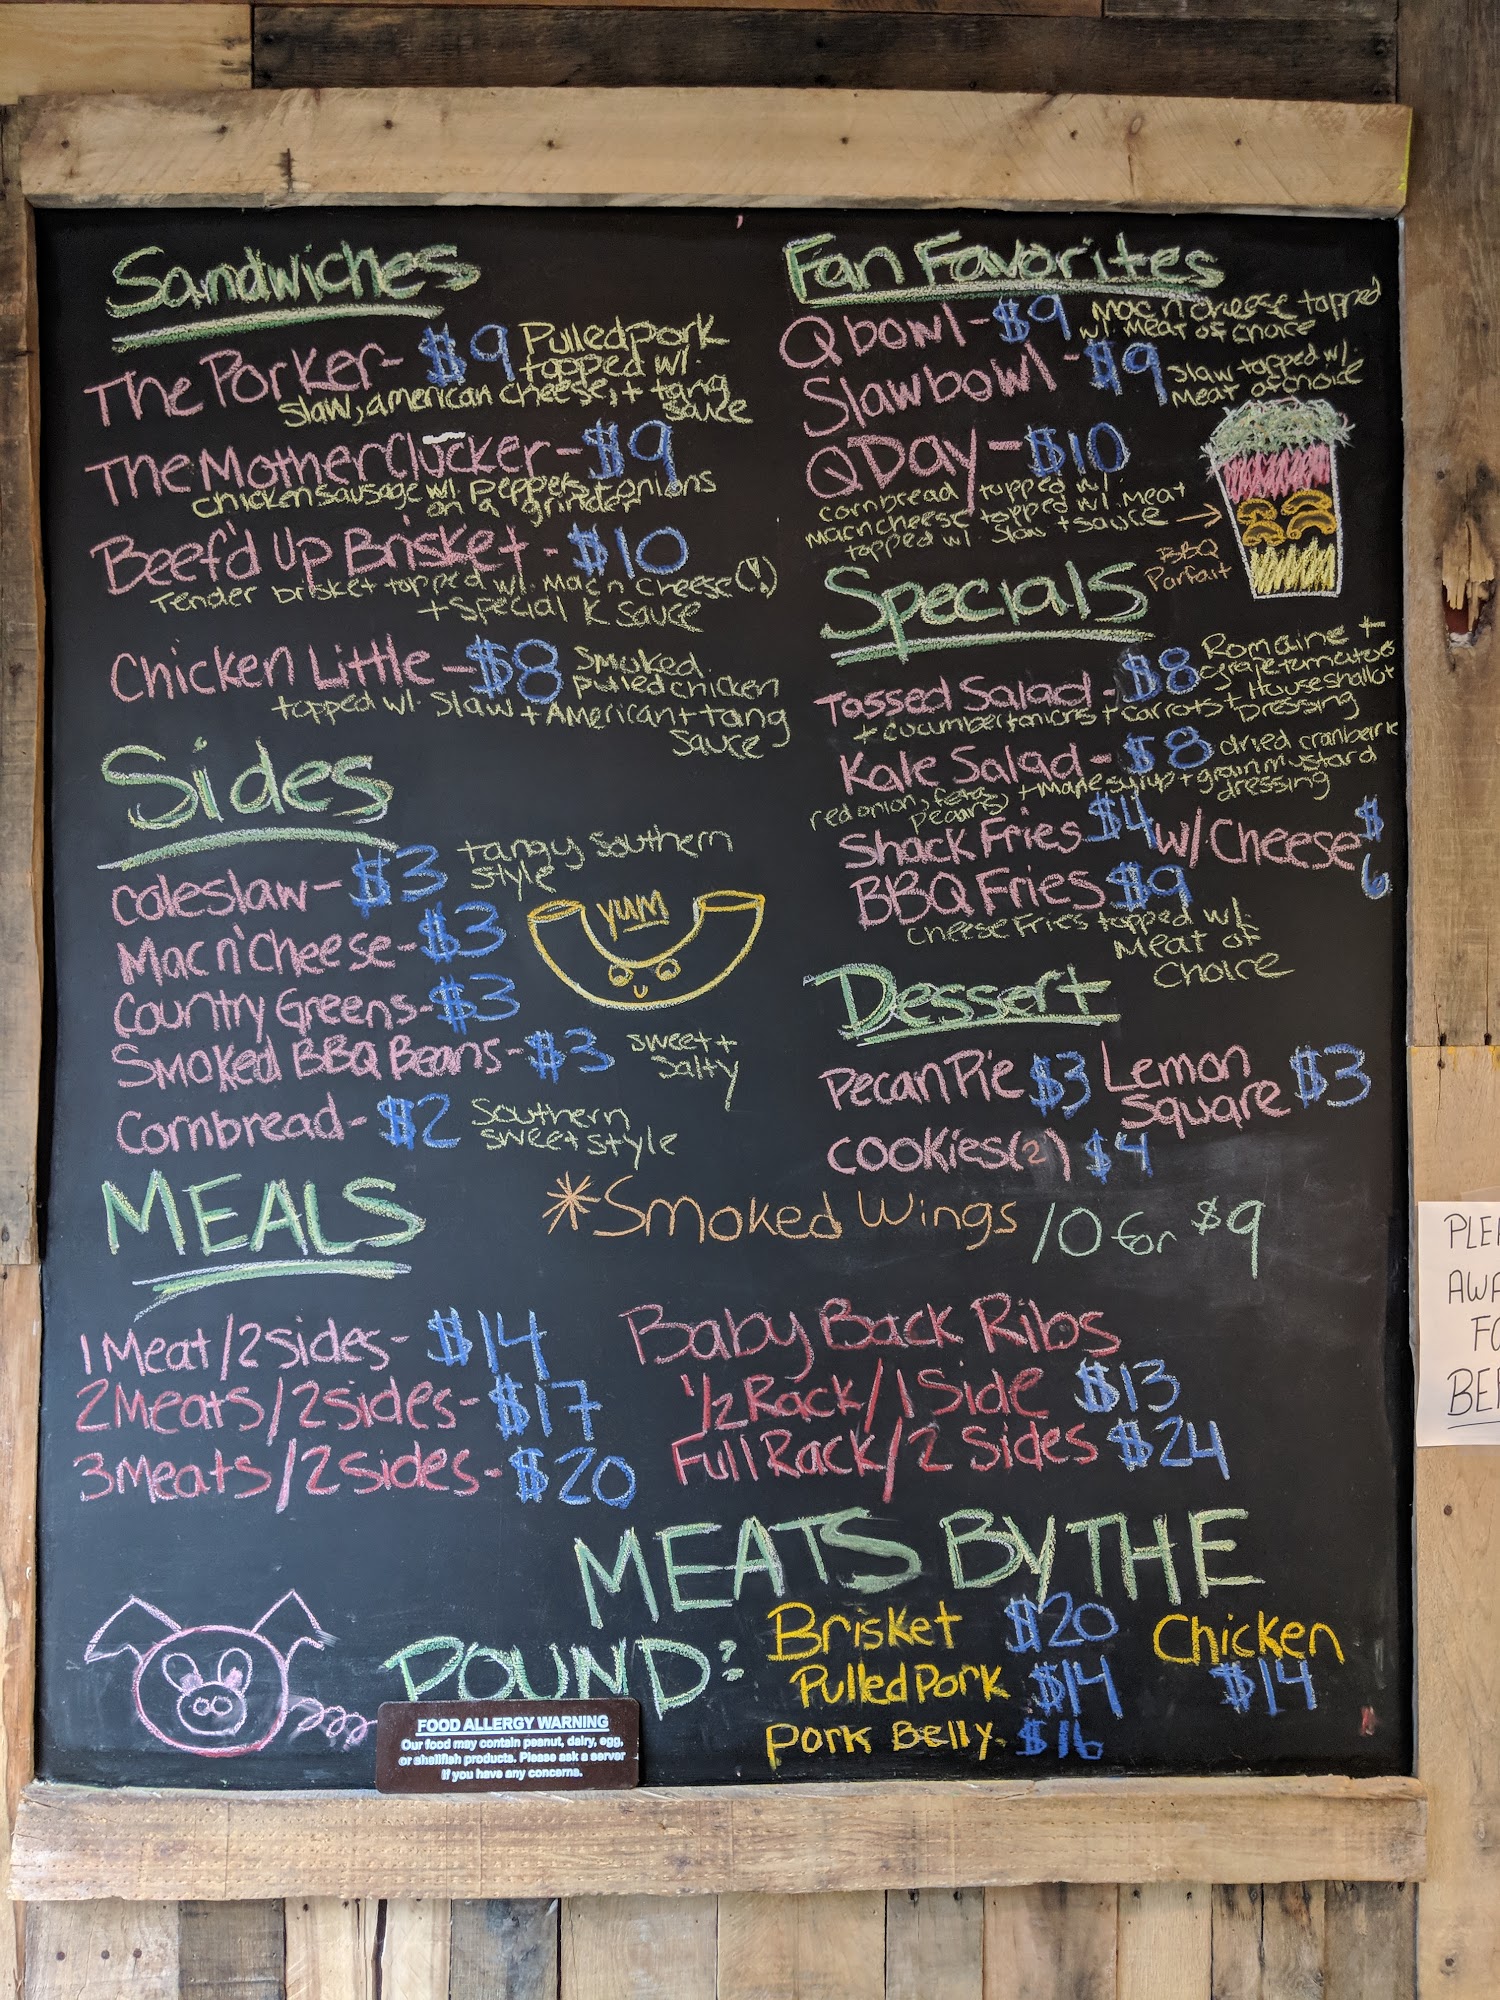 Sandwiches
The Porker- $9 Pulled pork
topped w/.
slaw, american cheese, + tang
sauce
The MotherClucker- $9
chicken sausage w/. peppers + onions
on a grinder
Beef'd Up Brisket - $10
Tender brisket topped w/. Mac n cheese (!)
+ special K sauce
Chicken Little - $8 smoked
pulled chicken
topped w/. slaw + American + tang
sauce
Sides
coleslaw- $3 tangy southern
style
Mac n' Cheese- $3
yum
Country Greens- $3
Smoked BBQ Beans- $3 sweet +
salty
Cornbread- $2 southern
sweet style
Fan Favorites
Q bowl- $9 Mac n cheese topped
w/. meat of choice
Slawbowl - $9 slaw topped w/.
meat of choice
Q Day - $10
cornbread topped w/.
mac n cheese topped w/. meat
topped w/. slaw + sauce
BBQ
Parfait
Specials
Tossed Salad - $8 Romaine +
grape tomatoes
+ cucumber + onions + carrots + House shallot
Dressing
Kale Salad - $8 dried cranberries
red onion, feta, + maple syrup + grain mustard
pecans dressing
Shack Fries $4 w/ Cheese $6
BBQ Fries $9
cheese Fries topped w/.
Meat of
Choice
Dessert
Pecan Pie $3 Lemon
Square $3
cookies (2) $4
*Smoked Wings 10 for $9
MEALS
1 Meat/2 sides- $14
2 Meats/2 sides- $17
3 Meats/2 sides- $20
Baby Back Ribs
1/2 Rack/1 Side $13
Full Rack/2 Sides $24
MEATS BY THE
POUND:
Brisket $20
Pulled Pork $14
Pork Belly. $16
Chicken
$14
FOOD ALLERGY WARNING
Our food may contain peanut, dairy, egg,
or shellfish products. Please ask a server
if you have any concerns.